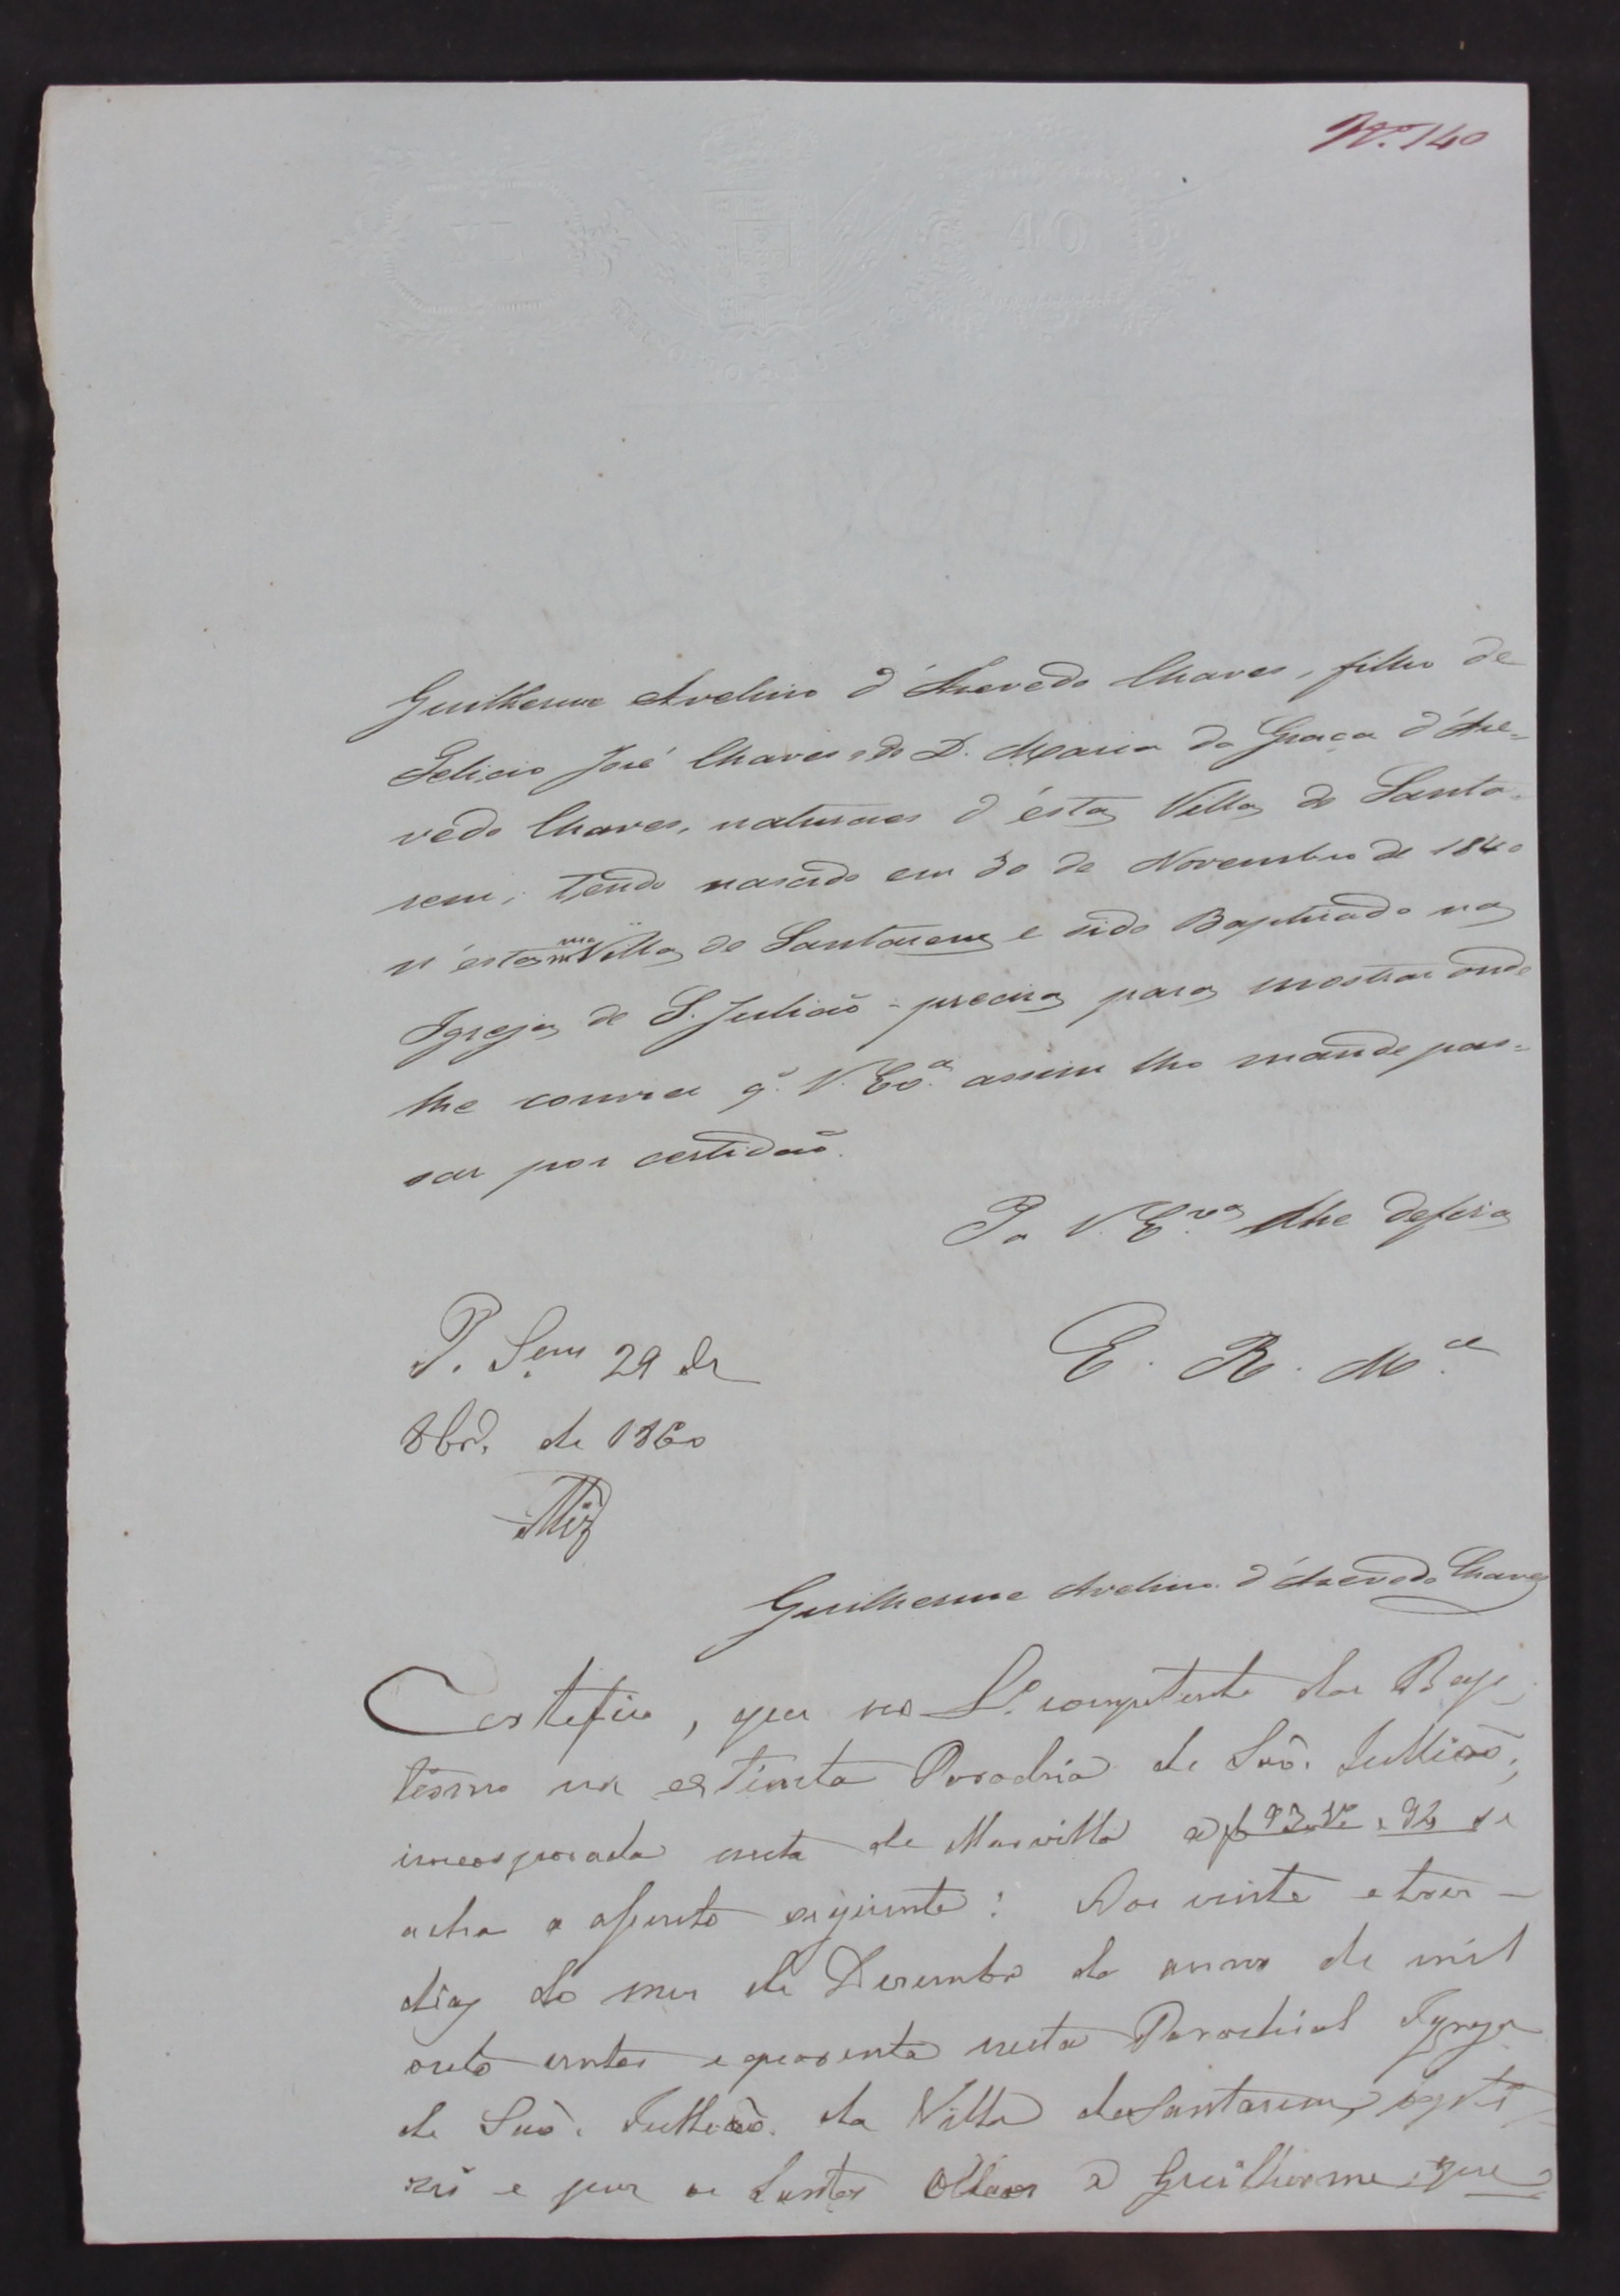 Nº. 140
40
Guilherme Avelino d'Azevedo Chaves, filho de
Felicio José Chaves e de D. Maria da Graça d'Aze-
vedo Chaves, naturaes d'ésta Villa de Santa-
rem; tendo nascido em 30 de Novembro de 1840
n'ésta mma Villa de Santarem e sido Baptizado na
Igreja de S. Julião - precisa para mostrar onde
lhe convier q. V. Exª. assim lho mande pas-
sar por certidão.
P. a V. Exª lhe defira
E. R. M.ce
P. Sem 29 de
8brº. de 1860
Guilherme Avelino d'Azevedo Chaves
Certefico, que no Lº. competente dos Bap-
tismos na extincta Parochia de São. Jullião,
incorporada nesta de Marvilla a f 93 vº e 94 se
acha o assento seguinte: Aos vinte e tres
dias do mez de Dezembro do anno de mil
oito centos e quarenta nesta Parochial Igreja
de São. Jullião. da Villa de Santarem, bapti
zei e puz os Santos Olleos a Guilherme, que